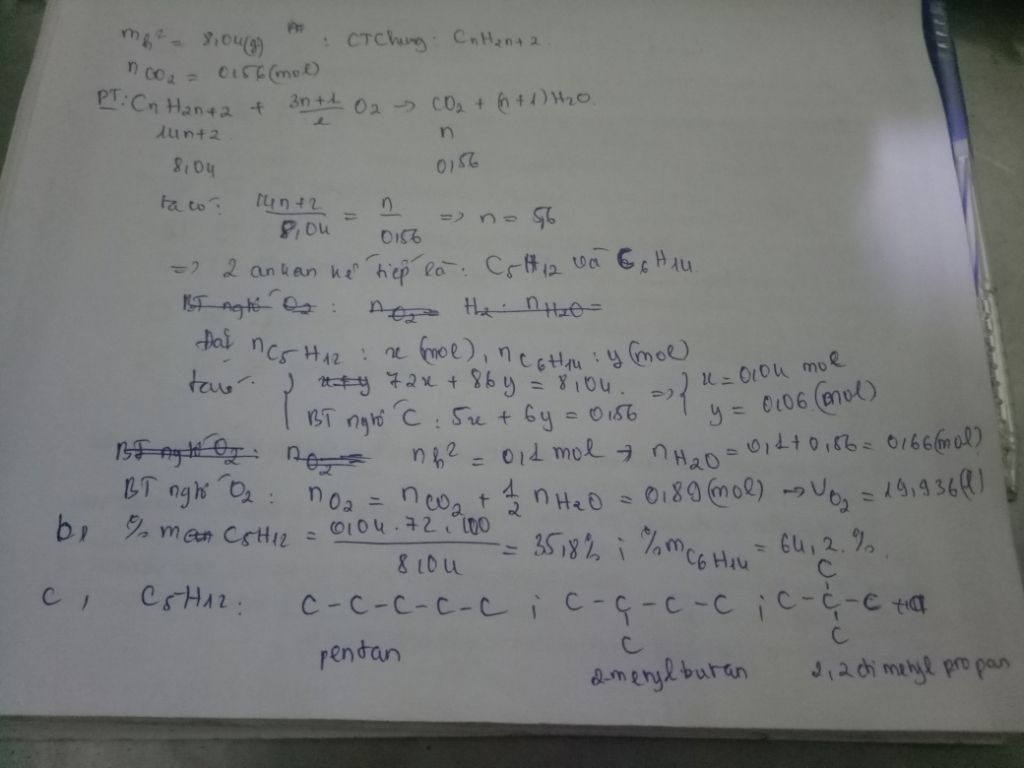 m h² = 8,04(g) : CTChung: CnH2n+2.
n CO2 = 0,56(mol)
PT: CnH2n+2 + 3n+1/2 O2 → CO2 + (n+1)H2O.
14n+2. n
8,04 0,56
ta có: 14n+2/8,04 = n/0,56 => n = 5,6
=> 2 ankan kế tiếp là: C5H12 và C6H14.
BT ngtố O2 : nO2 = H2 . nH2O =
Đặt nC5H12 : x (mol), nC6H14 : y (mol)
ta có: { x+y 72x + 86y = 8,04. => { x = 0,04 mol
BT ngtố C : 5x + 6y = 0,56 y = 0,06 (mol)
BT ngtố O2 : nO2 = n h² = 0,1 mol → nH2O = 0,1 + 0,56 = 0,66(mol)
BT ngtố O2 : nO2 = nCO2 + 1/2 nH2O = 0,89(mol) → VO2 = 19,936(l)
b, % m C5H12 = 0,04.72.100/8,04 = 35,8% ; %mC6H14 = 64,2.%.
c, C5H12: C-C-C-C-C ; C-C-C-C ; C-C-C
C C C
pentan 2-metylbutan 2,2 đimetyl propan